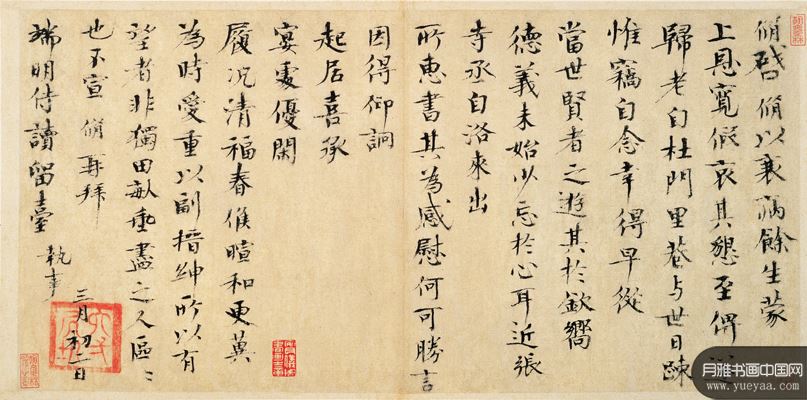 脩啓脩以衰病餘生蒙
上恩寬假哀其懇至俾
歸老自杜門里巷与世日踈
惟竊自念幸得早從
當世賢者之遊其於欽嚮
德義未始少忘於心耳近張
寺丞自洛來出
所惠書其為感慰何可勝言
因得仰詗
起居喜承
宴處優閑
履況清福春候暄和更冀
為時愛重以副搢紳所以有
望者非獨田畝垂盡之人區〻
也不宣 脩再拜
端明侍讀留臺 執事
三月初二日
月雅书画中国网
www.yueyaa.com